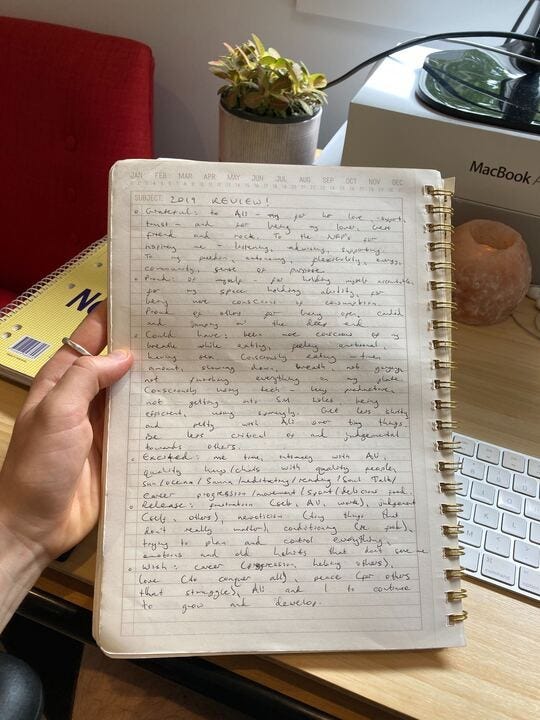 JAN FEB MAR APR MAY JUN JUL AUG SEP OCT NOV DEC
SUBJECT: 2019 REVIEW!
Grateful: to Ali - my for her love, support,
trust - and for being my lover, best
friend and rock. To the for
inspiring me - listening, advising, supporting.
To my autonomy, flexibility, energy,
community, sense of purpose
Proud: of myself - for holding myself accountable,
for my space holding ability, for
being more conscious of consumption.
Proud of others for being open, candid
and jumping in the deep end
Could have: been more conscious of my
breathe while eating, feeling emotional,
having sex. Consciously eating - times
amount, slowing down, breath, not gorging,
not finishing everything on my plate
Consciously using tech - being productive,
not getting into SM holes, being
efficient, using sparingly. Get less shitty
and petty with Ali over tiny things.
Be less critical of and judgemental
towards others.
Excited: me time, intimacy with Ali,
quality hugs/chats with quality people,
sun/ocean/sauna/meditating/reading/Soul Talk/
career progression/movement/sport/delicious food.
Release: frustration (self, Ali, work), judgement
(self, others), neuroticism (tiny things that
don't really matter), conditioning
trying to plan and control everything,
emotions and old habits that don't serve me
Wish: career (progression, helping others),
love (to conquer all), peace (for others
that struggle), Ali and I to continue
to grow and develop.
MacBook A